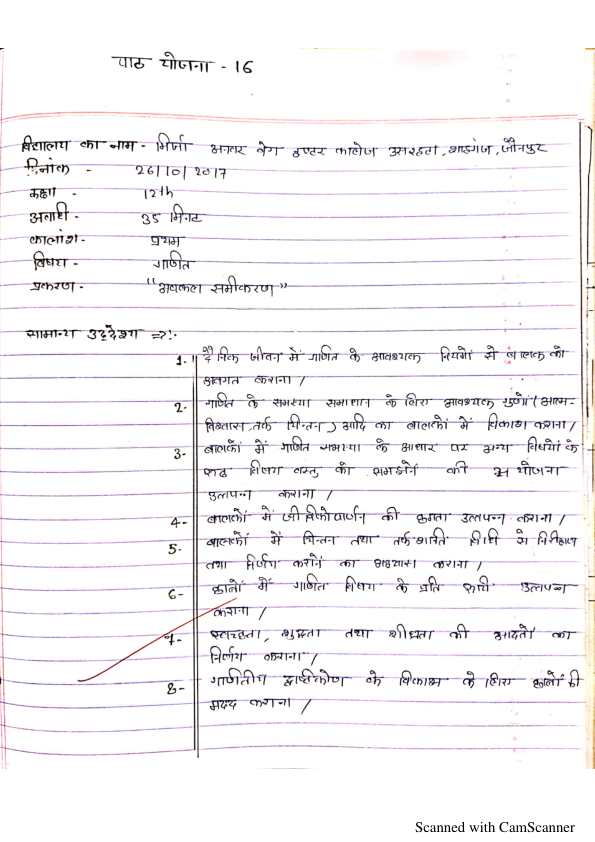 पाठ योजना - 16
विद्यालय का नाम - मिर्जा अनवर बेग इण्टर कालेज उसरहटा, शाहगंज, जौनपुर
दिनांक - 26/10/2017
कक्षा - 12th
अवधि - 35 मिनट
कालांश - प्रथम
विषय - गणित
प्रकरण - "अवकल समीकरण"
सामान्य उद्देश्य ⇒:-
1- दैनिक जीवन में गणित के आवश्यक नियमों से बालक को
अवगत कराना /
2- गणित के समस्या समाधान के लिए आवश्यक गुणों (आत्म-
विश्वास तर्क चिन्तन) आदि का बालकों में विकाश कराना /
3- बालकों में गणित समस्या के आधार पर अन्य विषयों के
विषय वस्तु को समझने की योजना
उत्पन्न कराना /
4- बालकों में जीविकोपार्जन की क्षमता उत्पन्न कराना /
5- बालकों में चिन्तन तथा तर्क शक्ति विधि से निरीक्षण
तथा निर्णय करने का अभ्यास कराना /
6- छात्रों में गणित विषय के प्रति रुचि उत्पन्न
कराना /
7- स्वच्छता, शुद्धता तथा शीघ्रता की आदतों का
निर्णय कराना /
8- गणितीय दृष्टिकोण के विकास के लिए छात्रों की
मदद कराना /
Scanned with CamScanner